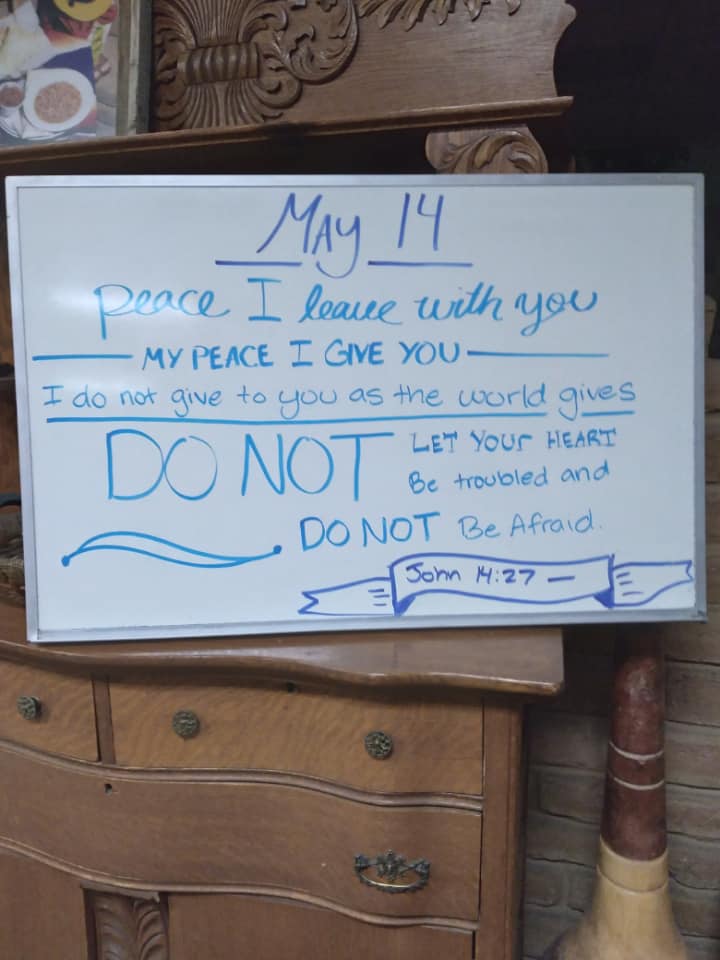 May 14
peace I leave with you
MY PEACE I GIVE YOU
I do not give to you as the world gives
DO NOT LET YOUr HEART
Be troubled and
DO NOT Be Afraid.
John 14:27 —